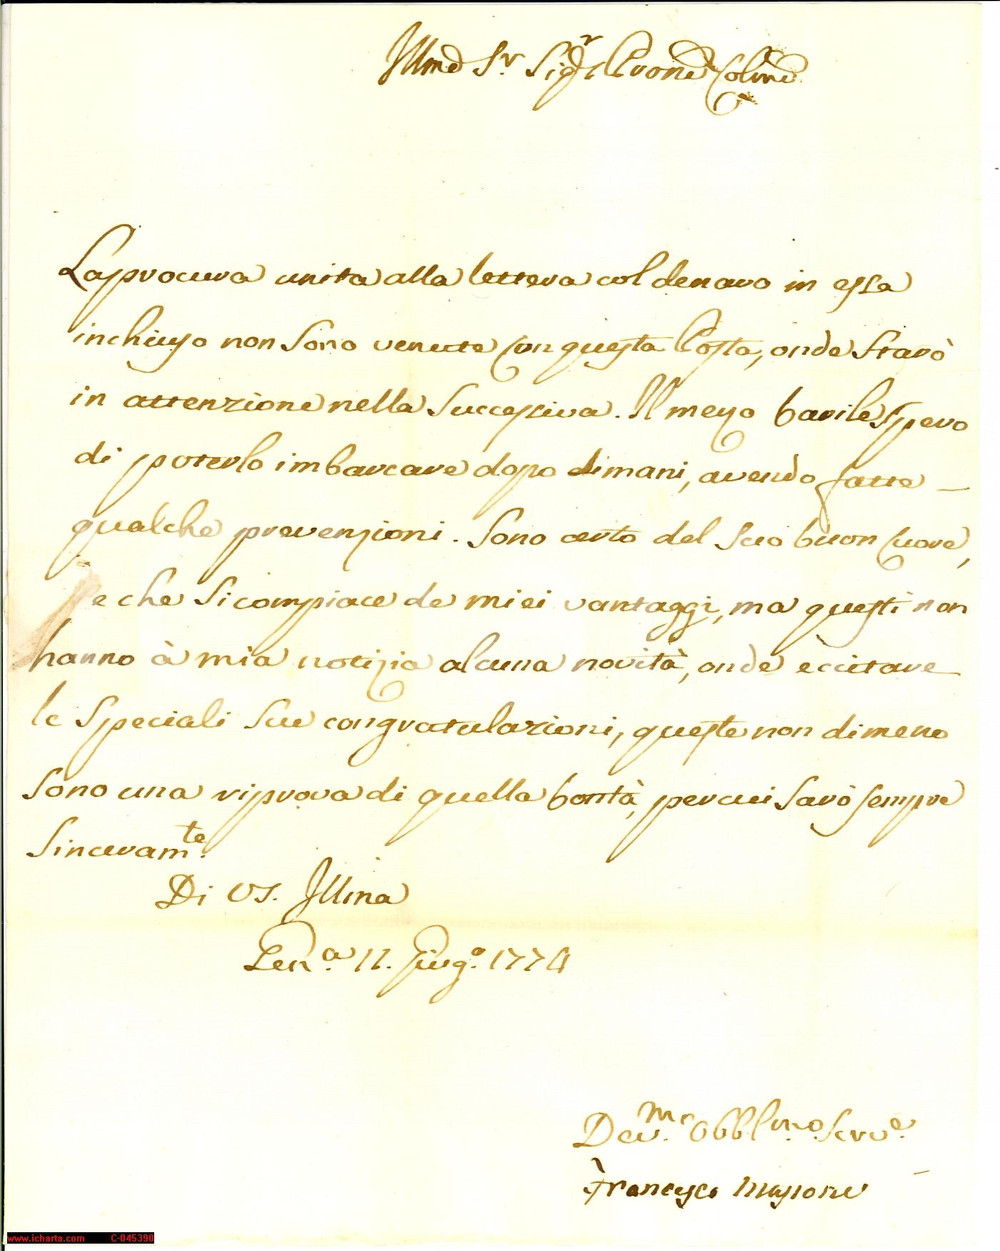 Illmo Sr Sigr Prone Colmo
La procura unita alla lettera col denaro in essa
inchiuso non sono venute con questa Posta, onde starò
in attenzione nella successiva. Il mezo barile spero
di poterlo imbarcare dopo dimani, avendo fatte
qualche prevenzioni. Sono certo del suo buon Cuore,
e che si compiace de miei vantaggi, ma questi non
hanno à mia notizia alcuna novità, onde eccitare
le speciali sue congratulazioni, queste non dimeno
sono una riprova di quella bontà, per cui sarò sempre
sinceramte.
Di VS. Illma
Gena. 11. Giugo. 1774
Devmo. Obblmo. Serve.
Francesco
www.icharta.com C-045390